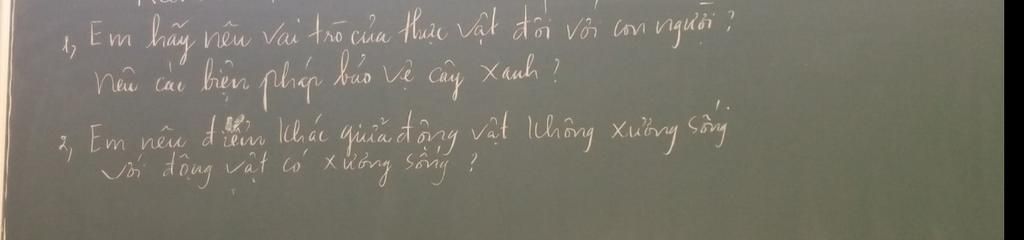 1, Em hãy nêu vai trò của thực vật đối với con người?
Nêu các biện pháp bảo vệ cây xanh?
2, Em nêu điểm khác giữa động vật không xương sống
với động vật có xương sống?